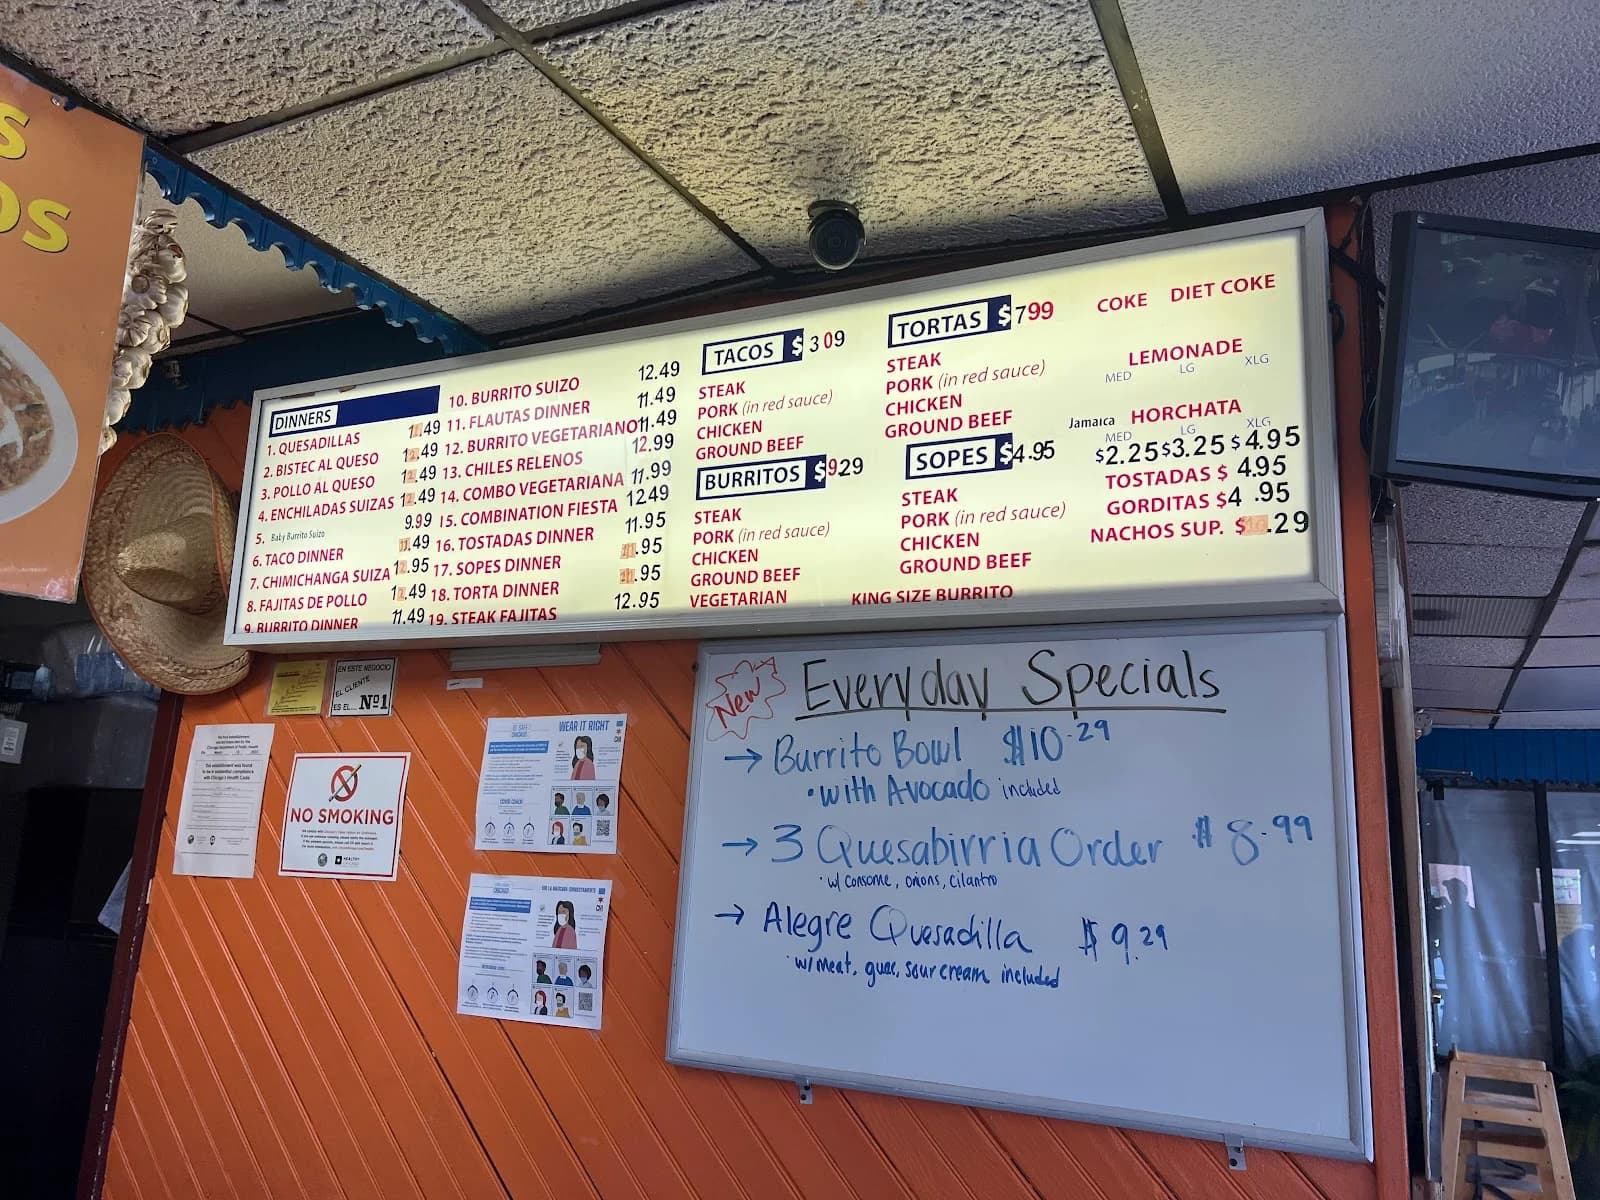 S
OS
DINNERS
1. QUESADILLAS 11.49
2. BISTEC AL QUESO 12.49
3. POLLO AL QUESO 12.49
4. ENCHILADAS SUIZAS 12.49
5. Baby Burrito Suizo 9.99
6. TACO DINNER 11.49
7. CHIMICHANGA SUIZA 12.95
8. FAJITAS DE POLLO 12.49
9. BURRITO DINNER 11.49
10. BURRITO SUIZO 12.49
11. FLAUTAS DINNER 11.49
12. BURRITO VEGETARIANO 11.49
13. CHILES RELENOS 12.99
14. COMBO VEGETARIANA 11.99
15. COMBINATION FIESTA 12.49
16. TOSTADAS DINNER 11.95
17. SOPES DINNER .95
18. TORTA DINNER .95
19. STEAK FAJITAS 12.95
TACOS $3 09
STEAK
PORK (in red sauce)
CHICKEN
GROUND BEEF
BURRITOS $9.29
STEAK
PORK (in red sauce)
CHICKEN
GROUND BEEF
VEGETARIAN
TORTAS $799
STEAK
PORK (in red sauce)
CHICKEN
GROUND BEEF
SOPES $4.95
STEAK
PORK (in red sauce)
CHICKEN
GROUND BEEF
KING SIZE BURRITO
COKE DIET COKE
LEMONADE
MED LG XLG
Jamaica HORCHATA
MED LG XLG
$2.25 $3.25 $4.95
TOSTADAS $ 4.95
GORDITAS $4 .95
NACHOS SUP. $10.29
New Everyday Specials
→ Burrito Bowl $10.29
• with Avocado included
→ 3 Quesabirria Order $8.99
• w/ consome, onions, cilantro
→ Alegre Quesadilla $9.29
• w/ meat, guac, sour cream included
EN ESTE NEGOCIO
EL CLIENTE
ES EL... Nº1
NO SMOKING
WEAR IT RIGHT